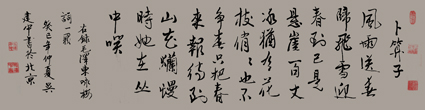 卜算子
風雨送春
歸飛雪迎
春到已是
悬崖百丈
冰猶有花
枝俏俏也不
争春只把春
来報待到
山花爛慢
時她在丛
中咲
右錄毛澤東咏梅
詞一首
癸巳年仲夏